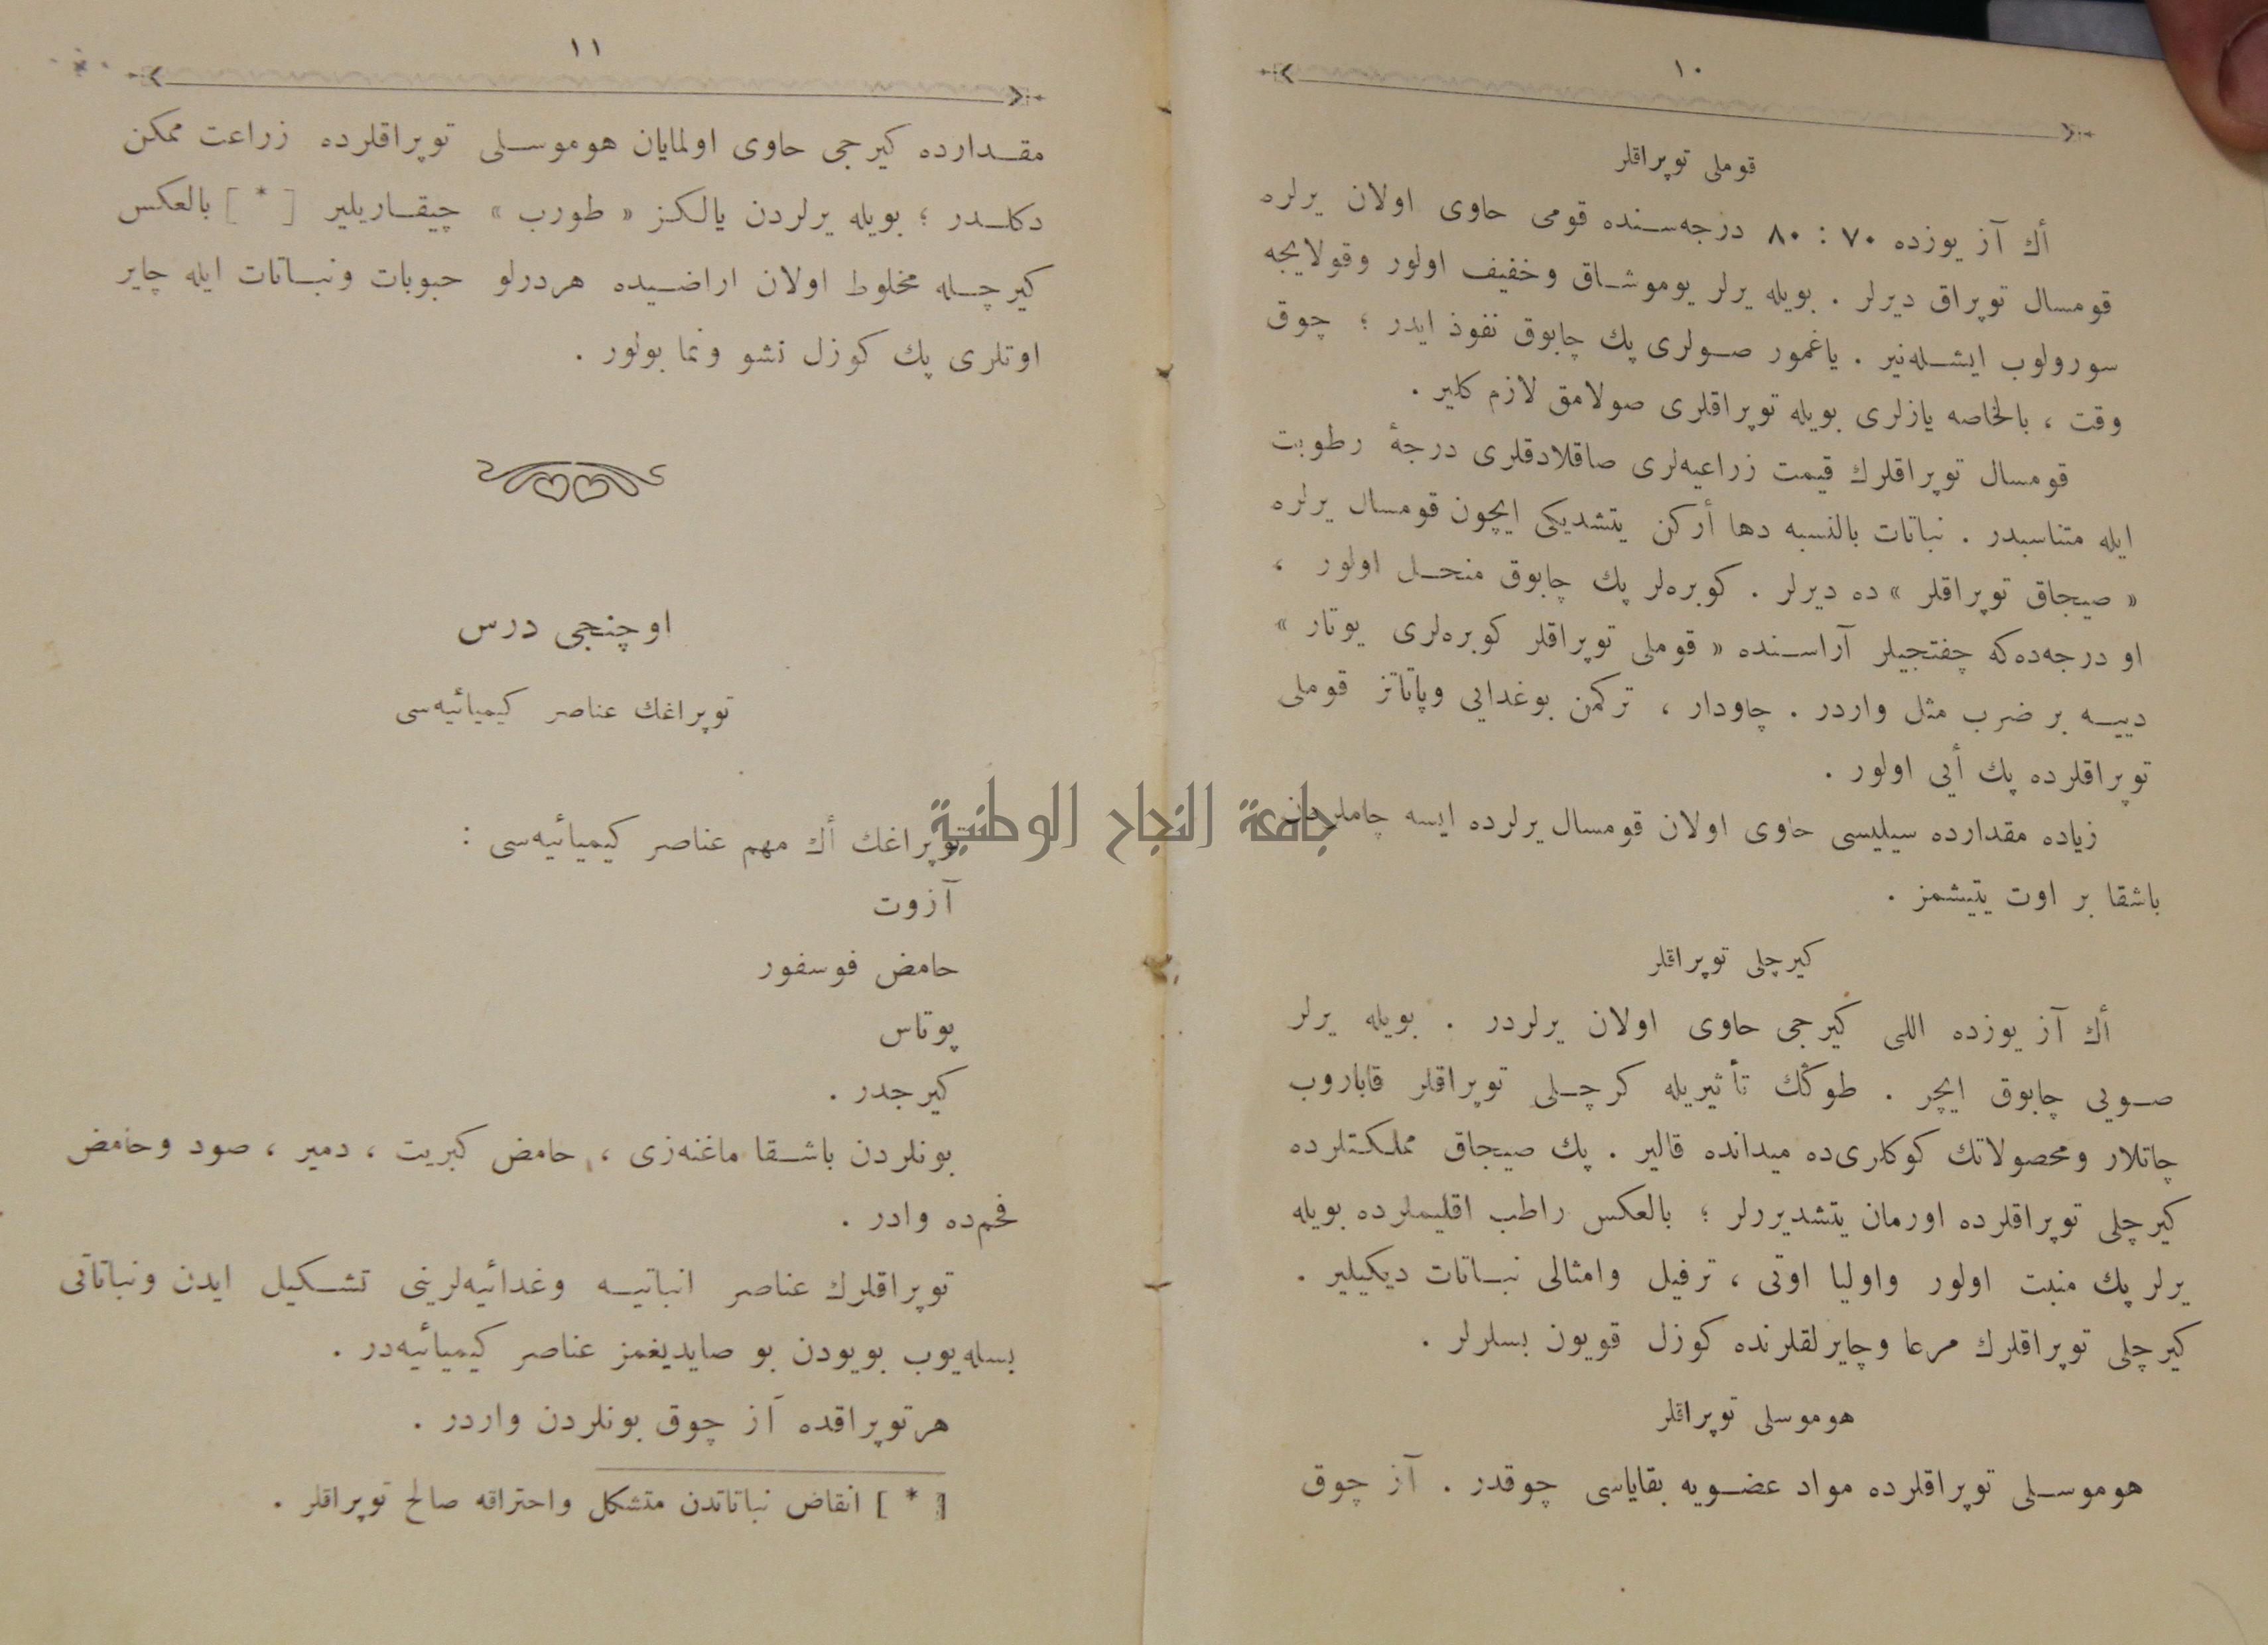 ١٠
قوملی توپراقلر
أك آز یوزده ٧٠ : ٨٠ درجه‌سنده قومی حاوی اولان یرلره
قومسال توپراق دیرلر . بویله یرلر یوموشاق وخفیف اولور وقولایجه
سورولوب ایشله‌نیر . یاغمور صولری پك چابوق نفوذ ایدر ؛ چوق
وقت ، بالخاصه یازلری بویله توپراقلری صولامق لازم كلیر .
قومسال توپراقلرك قیمت زراعیه‌لری صاقلادقلری درجهٔ رطوبت
ایله متناسبدر . نباتات بالنسبه دها أركن یتشدیكی ایچون قومسال یرلره
« صیجاق توپراقلر » ده دیرلر . كوبره‌لر پك چابوق منحل اولور ،
او درجه‌ده‌كه چفتجیلر آراسنده « قوملی توپراقلر كوبره‌لری یوتار »
دییه بر ضرب مثل واردر . چاودار ، تركمن بوغدایی وپاتاتز قوملی
توپراقلرده پك أیی اولور .
زیاده مقدارده سیلیسی حاوی اولان قومسال یرلرده ایسه چاملردن
باشقا بر اوت یتیشمز .
كیرچلی توپراقلر
أك آز یوزده اللی كیرجی حاوی اولان یرلردر . بویله یرلر
صویی چابوق ایچر . طوڭك تأثیریله كرچلی توپراقلر قاباروب
چاتلار ومحصولاتك كوكلری‌ده میدانده قالیر . پك صیجاق مملكتلرده
كیرچلی توپراقلرده اورمان یتشدیررلر ؛ بالعكس راطب اقلیملرده بویله
یرلر پك منبت اولور واولیا اوتی ، ترفیل وامثالی نباتات دیكیلیر .
كیرچلی توپراقلرك مرعا وچایرلقلرنده كوزل قویون بسلرلر .
هوموسلی توپراقلر
هوموسلی توپراقلرده مواد عضویه بقایاسی چوقدر . آز چوق
١١
مقدارده كیرجی حاوی اولمایان هوموسلی توپراقلرده زراعت ممكن
دكلدر ؛ بویله یرلردن یالكز « طورب » چیقاریلیر [ * ] بالعكس
كیرچله مخلوط اولان اراضیده هردرلو حبوبات ونباتات ایله چایر
اوتلری پك كوزل نشو ونما بولور .
اوچنجی درس
توپراغك عناصر كیمیائیه‌سی
توپراغك أك مهم عناصر كیمیائیه‌سی :
آزوت
حامض فوسفور
پوتاس
كیرجدر .
بونلردن باشقا ماغنه‌زی ، حامض كبریت ، دمیر ، صود وحامض
فحم‌ده وادر .
توپراقلرك عناصر انباتیه وغدائیه‌لرینی تشكیل ایدن ونباتاتی
بسله‌یوب بویودن بو صایدیغمز عناصر كیمیائیه‌در .
هرتوپراقده آز چوق بونلردن واردر .
[ * ] انقاض نباتاتدن متشكل واحتراقه صالح توپراقلر .
جامعة النجاح الوطنية